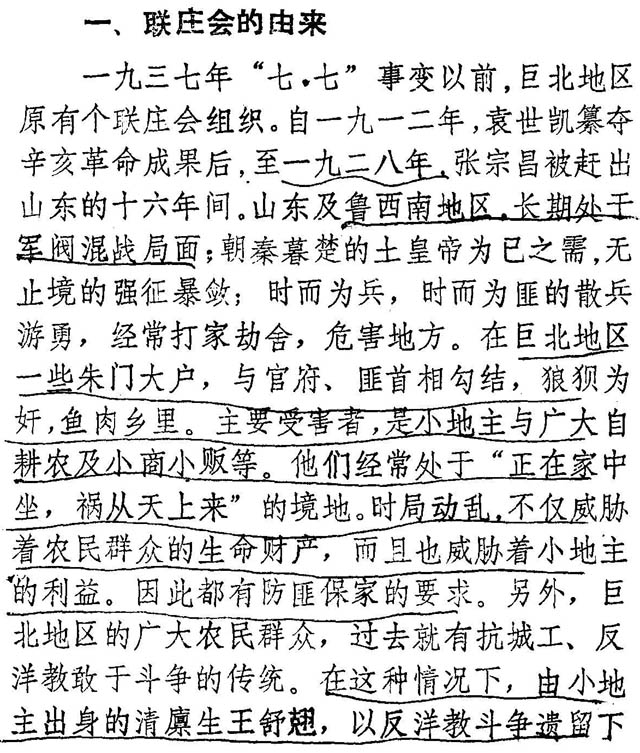 一、联庄会的由来
一九三七年“七·七”事变以前，巨北地区
原有个联庄会组织。自一九一二年，袁世凯纂夺
辛亥革命成果后，至一九二八年，张宗昌被赶出
山东的十六年间。山东及鲁西南地区，长期处于
军阀混战局面；朝秦暮楚的土皇帝为已之需，无
止境的强征暴敛；时而为兵，时而为匪的散兵
游勇，经常打家劫舍，危害地方。在巨北地区
一些朱门大户，与官府、匪首相勾结，狼狈为
奸，鱼肉乡里。主要受害者，是小地主与广大自
耕农及小商小贩等。他们经常处于“正在家中
坐，祸从天上来”的境地。时局动乱，不仅威胁
着农民群众的生命财产，而且也威胁着小地主
的利益。因此都有防匪保家的要求。另外，巨
北地区的广大农民群众，过去就有抗城工、反
洋教敢于斗争的传统。在这种情况下，由小地
主出身的清廪生王舒翘，以反洋教斗争遗留下